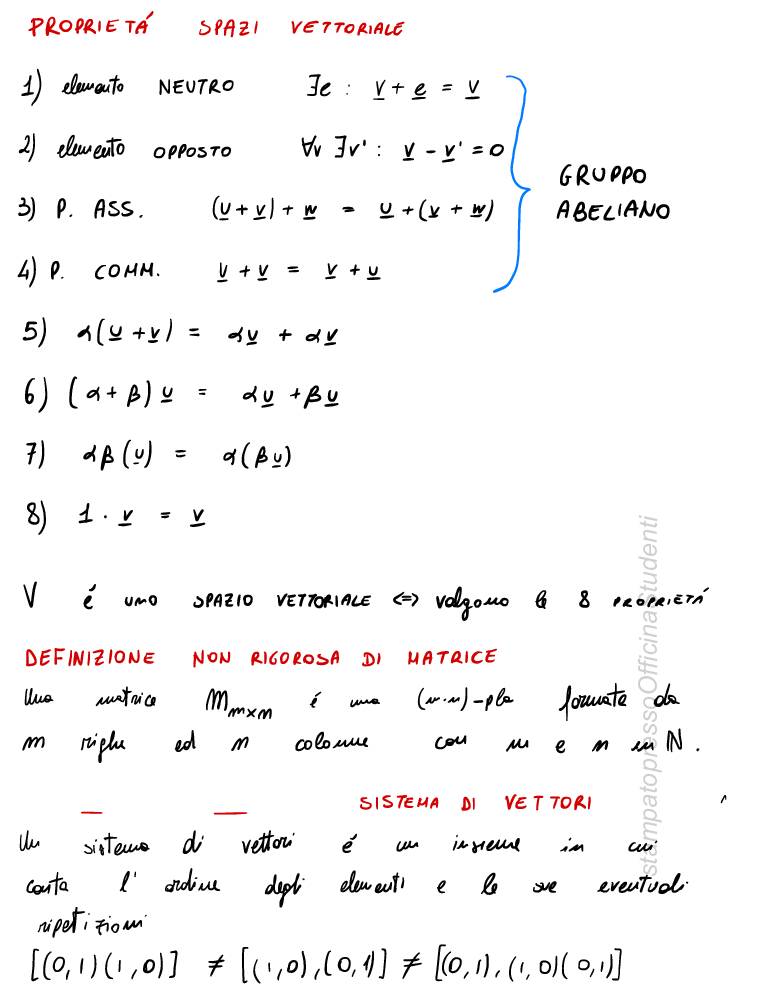 PROPRIETÁ SPAZI VETTORIALE
1) elemento NEUTRO ∃e : v + e = v
2) elemento OPPOSTO ∀v ∃v' : v - v' = 0
3) P. ASS. (u + v) + w = u + (v + w)
4) P. COMM. v + v = v + u
GRUPPO
ABELIANO
5) α(u + v) = αu + αv
6) (α + β) u = αu + βu
7) αβ(u) = α(βu)
8) 1 · v = v
V é uno SPAZIO VETTORIALE <=> valgono le 8 PROPRIETÁ
DEFINIZIONE NON RIGOROSA DI MATRICE
Una matrice M m×n é una (m·n)-pla formata da
m righe ed n colonne con m e n in ℕ.
SISTEMA DI VETTORI
Un sistema di vettori é un insieme in cui
conta l'ordine degli elementi e le sue eventuali
ripetizioni
[(0,1)(1,0)] ≠ [(1,0),(0,1)] ≠ [(0,1),(1,0)(0,1)]
stampatopressoOfficinaStudenti